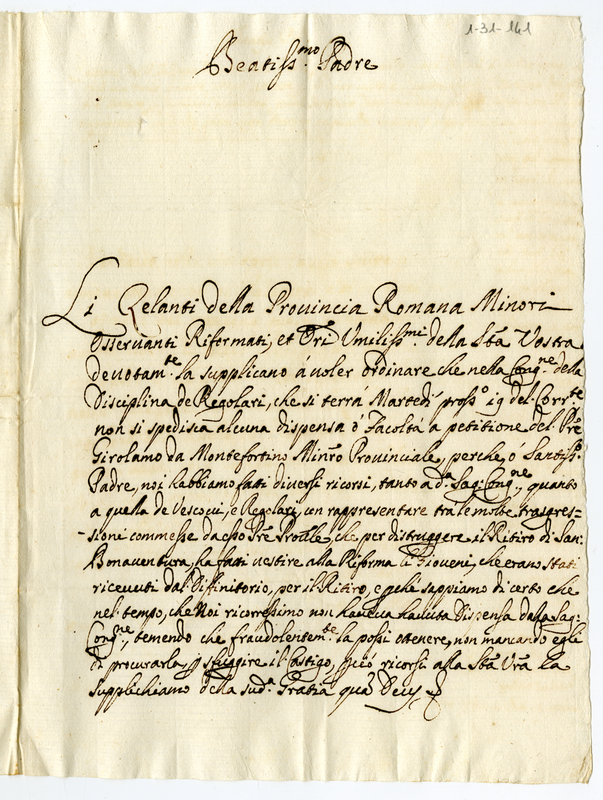 1-31-141
Beatiss.mo Padre
Li Zelanti della Prouincia Romana Minori
Osseruanti Riformati, et Ori Vmiliss.mi della Stà Vostra
deuotam.te la supplicano à uoler ordinare che nella Cong.ne della
Disciplina de Regolari, che si terrá Martedì pross.o 19 del Corr.te
non si spedisia alcuna dispensa ò Facoltà a petitione del Pre
Girolamo da Montefortino Minro Prouinciale, perche, ó Santiss.o
Padre, noi habbiamo fati diuersi ricorsi, tanto a d.a Sag: Cong.ne, quanto
a quella de Vescoui, e Regolari, con rappresentare tra le molte trasgres-
-sioni commesse da esso Pre Proule, che per distruggere il Ritiro di San
Bonauentura, ha fati uestire alla Riforma li Gioueni, che erano stati
riceuuti dal Diffinitorio, per il Ritiro, e perche sappiamo di certo che
nel tempo, che Noi ricorressimo non haueua hauuta Dispensa dalla Sag:
Cong.ne, temendo che fraudolentem.te la possi ottenere, non mancando egli
di precurarla, p sfuggire il Castigo, perciò ricorsi alla Stà Vra la
supplichiamo della sud.a Gratia qua Deus &